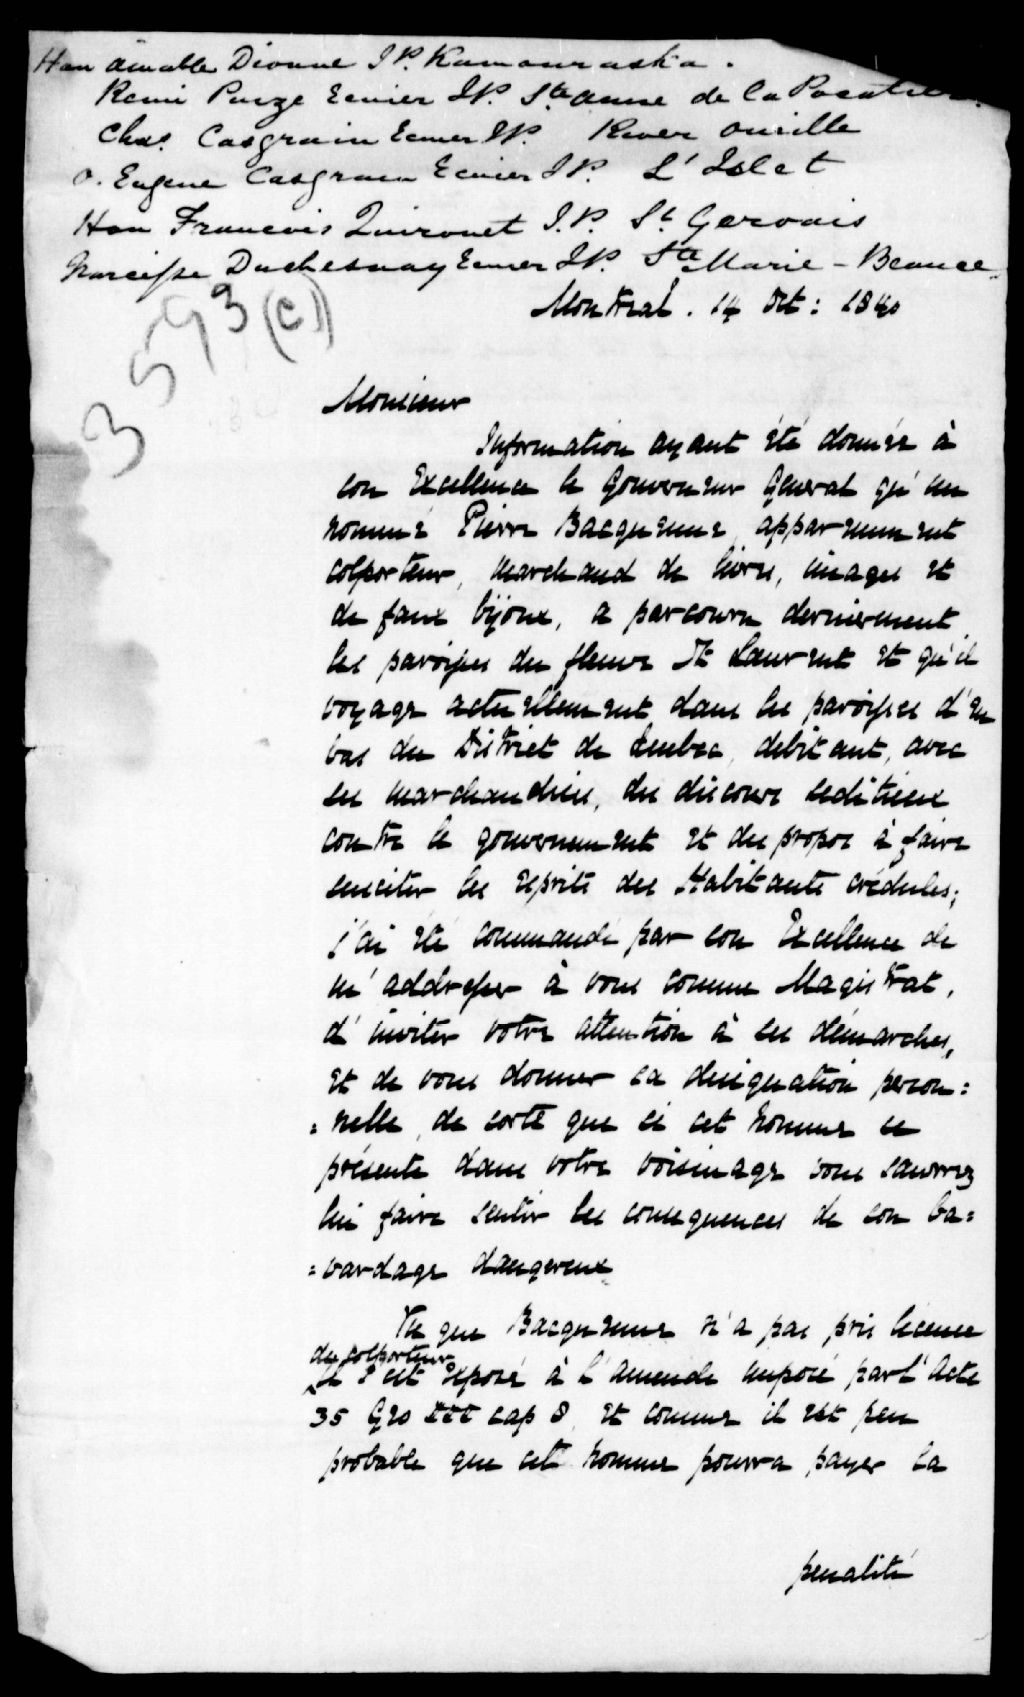 Hon Amable Dionne J.P. Kamouraska.
Remi Piuze Ecuier J.P. Ste Anne de la Pocatiere
Chas. Casgrain Ecuier J.P. River Ouelle
O. Eugene Casgrain Ecuier J.P. L'Islet
Hon Francois Quirouet J.P. St Gervais
Narcisse Duchesnay Ecuier J.P. Ste Marie - Beauce
Montreal. 14 Oct: 1840
3593 (c)
Monsieur
Information ayant été donnée à
son Excellence le Gouverneur General qu'un
nommé Pierre Bacquenne, apparemment
colporteur, marchand de livres, images et
de faux bijoux, a parcouru dernierment
les paroisses du fleuve St Laurent et qu'il
voyage actuellement dans les paroisses d'en
bas du District de Quebec, debitant, avec
ses marchandises, des discours seditieux
contre le gouvernement et des propos à faire
susciter les esprits des Habitants crédules;
j'ai été commandé par son Excellence de
m'addresser à vous comme Magistrat,
d'inviter votre attention à ses démarches,
et de vous donner sa designation person:
:nelle, de sorte que si cet homme se
présente dans votre voisinage vous saurrez
lui faire sentir les consequences de son ba:
:vardage dangereux
Vu que Bacquenne n'a pas pris licence
de colporteur
il s'est exposé à l'amende imposé par l'Acte
35 Geo III cap 8, et comme il est peu
probable que cet homme pourra payer la
penalité